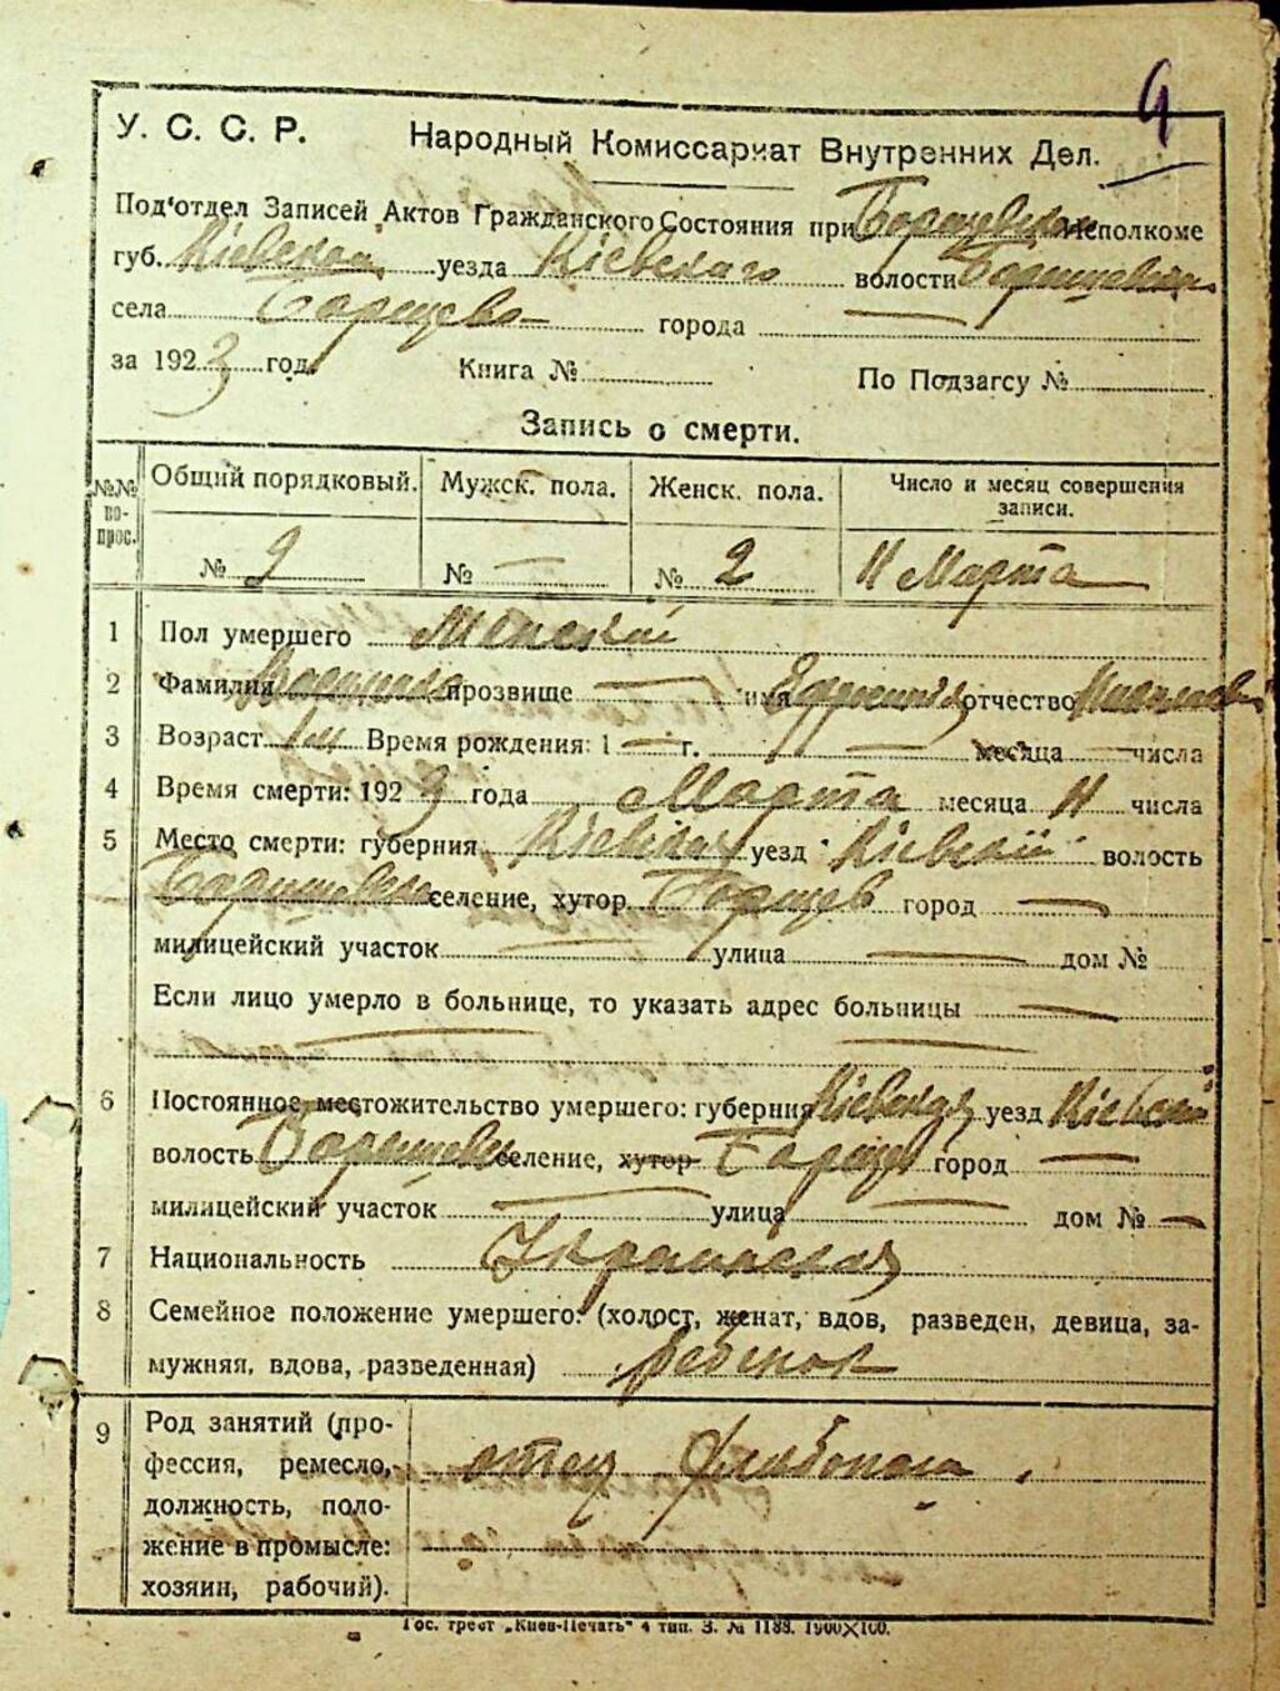 4
У. С. С. Р. Народный Комиссариат Внутренних Дел.
Под'отдел Записей Актов Гражданского Состояния при Борщевском Исполкоме
губ. Кіевской уезда Кіевского волости Борщевской
села Борщево города —
за 1923 год. Книга № По Подзагсу №
Запись о смерти.
№№ во- прос. Общий порядковый. Мужск. пола. Женск. пола. Число и месяц совершения записи.
№ 9 № — № 2 11 Марта
1 Пол умершего Женский
2 Фамилия прозвище — имя отчество
3 Возраст Время рождения: 1 — г. — месяца — числа
4 Время смерти: 1923 года Марта месяца 11 числа
5 Место смерти: губерния Кіевская уезд Кіевский волость
Борщевская селение, хутор Борщев город —
милицейский участок — улица — дом №
Если лицо умерло в больнице, то указать адрес больницы —
— —
6 Постоянное местожительство умершего: губерния Кіевская уезд Кіевский
волость Борщевск селение, хутор Борщев город —
милицейский участок — улица — дом № —
7 Национальность Украинская
8 Семейное положение умершего: (холост, женат, вдов, разведен, девица, за-
мужняя, вдова, разведенная) ребенок
9 Род занятий (про-
фессия, ремесло, отец хлебопашец
должность, поло-
жение в промысле:
хозяин, рабочий).
Гос. трест „Киев-Печать" 4 тип. З. № 1188. 1900X100.